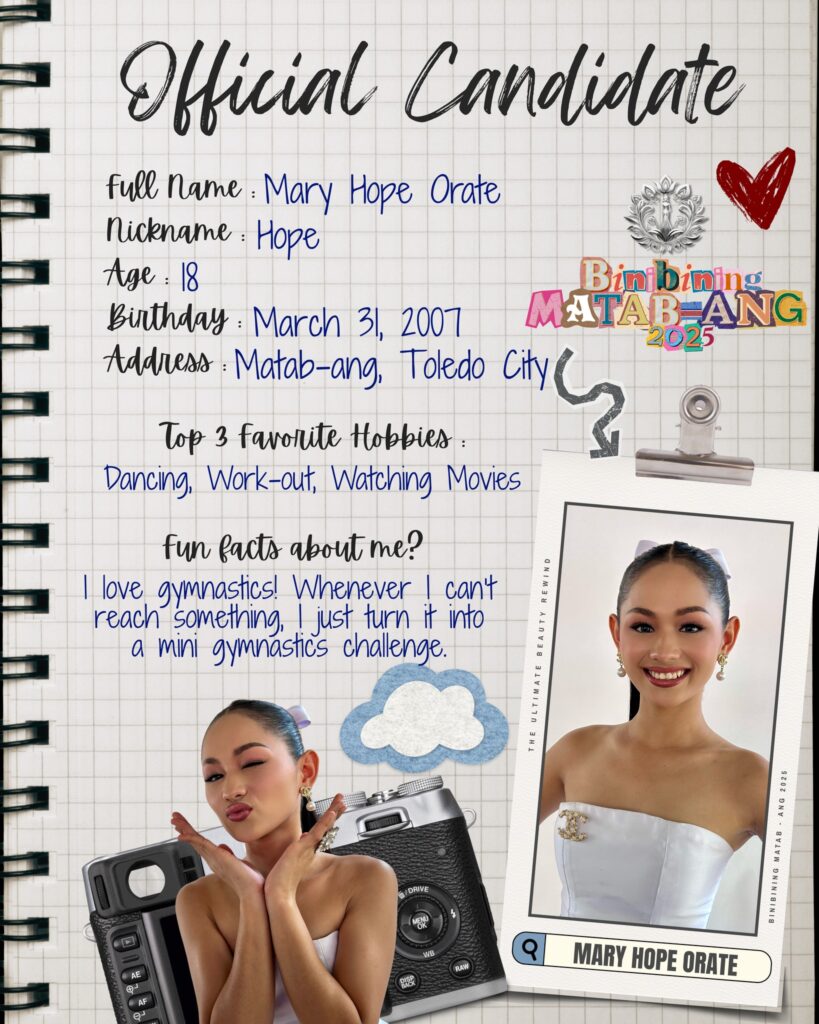 Official Candidate
Full Name : Mary Hope Orate
Nickname : Hope
Age : 18
Birthday : March 31, 2007
Address : Matab-ang, Toledo City
Binibining
MATAB-ANG
2025
Top 3 Favorite Hobbies :
Dancing, Work-out, Watching Movies
Fun facts about me?
I love gymnastics! Whenever I can't
reach something, I just turn it into
a mini gymnastics challenge.
THE ULTIMATE BEAUTY REWIND
BINIBINING MATAB - ANG 2025
MARY HOPE ORATE
/DRIVE
MENU
OK
WB
DISP
BACK
RAW
AE
AF